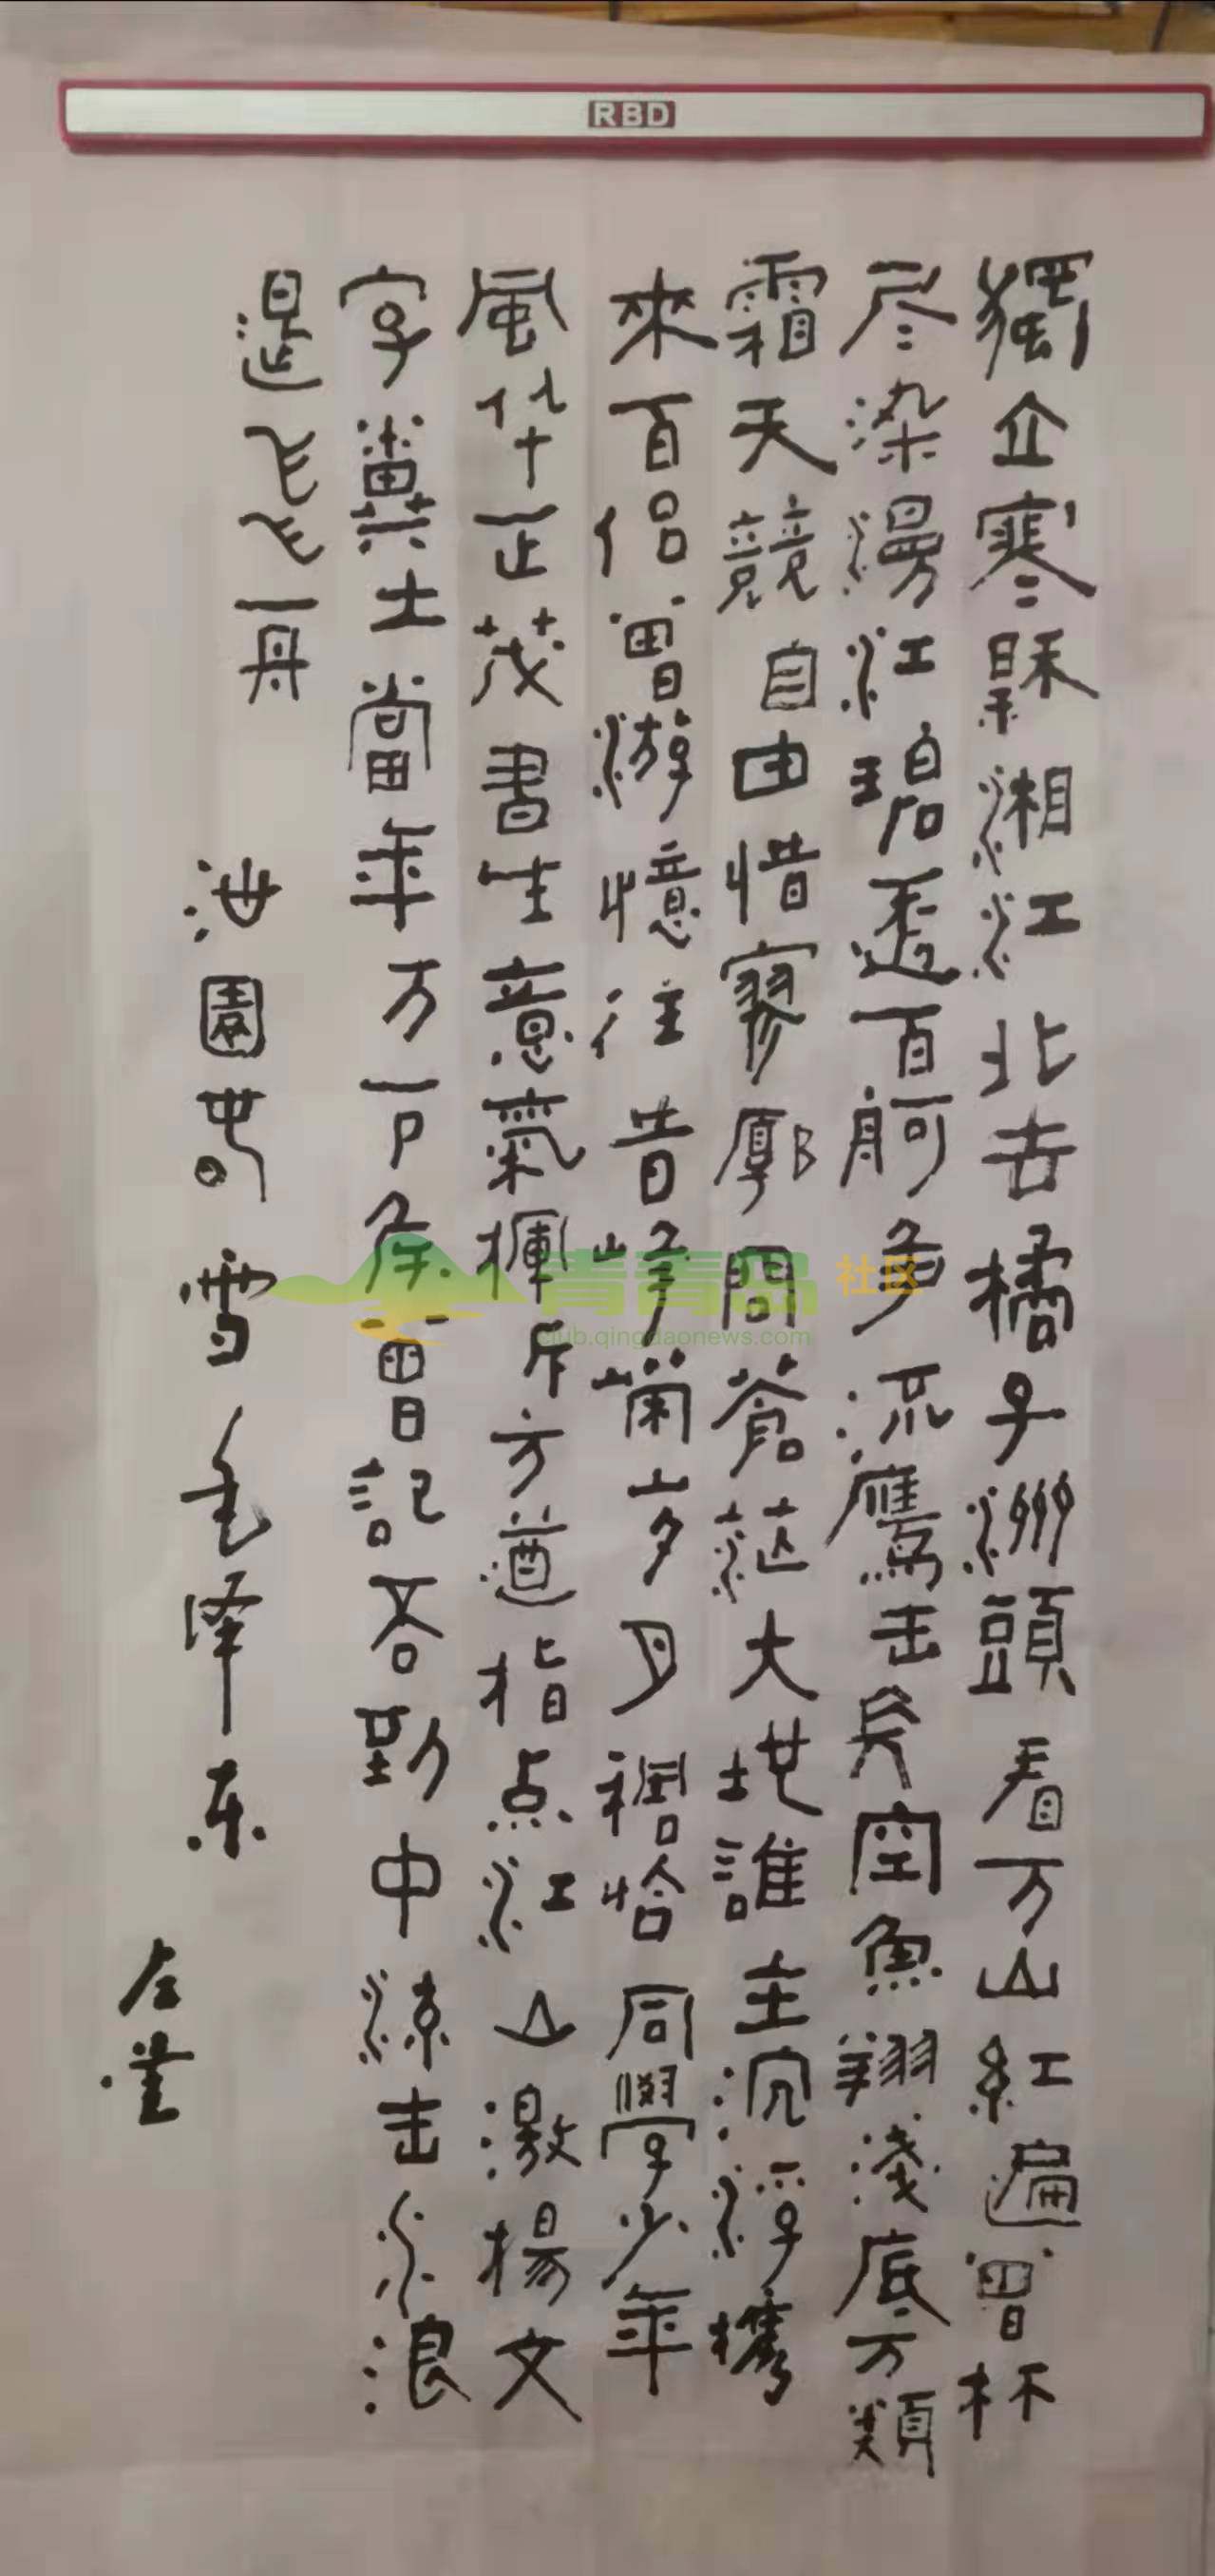 RBD
獨立寒秋湘江北去橘子洲頭看万山紅遍曾林
尽染漫江碧透百舸争流鷹击長空魚翔淺底万類
霜天競自由惜寥廓問蒼茫大地誰主沉浮攜
來百侣曾游憶往昔峥嶸岁月稠恰同學少年
風华正茂書生意氣揮斥方遒指点江山激揚文
字糞土當年万户侯曾記否到中流击水浪
遏飞舟
沁園春 雪 毛泽东
青青岛 社区
club.qingdaonews.com